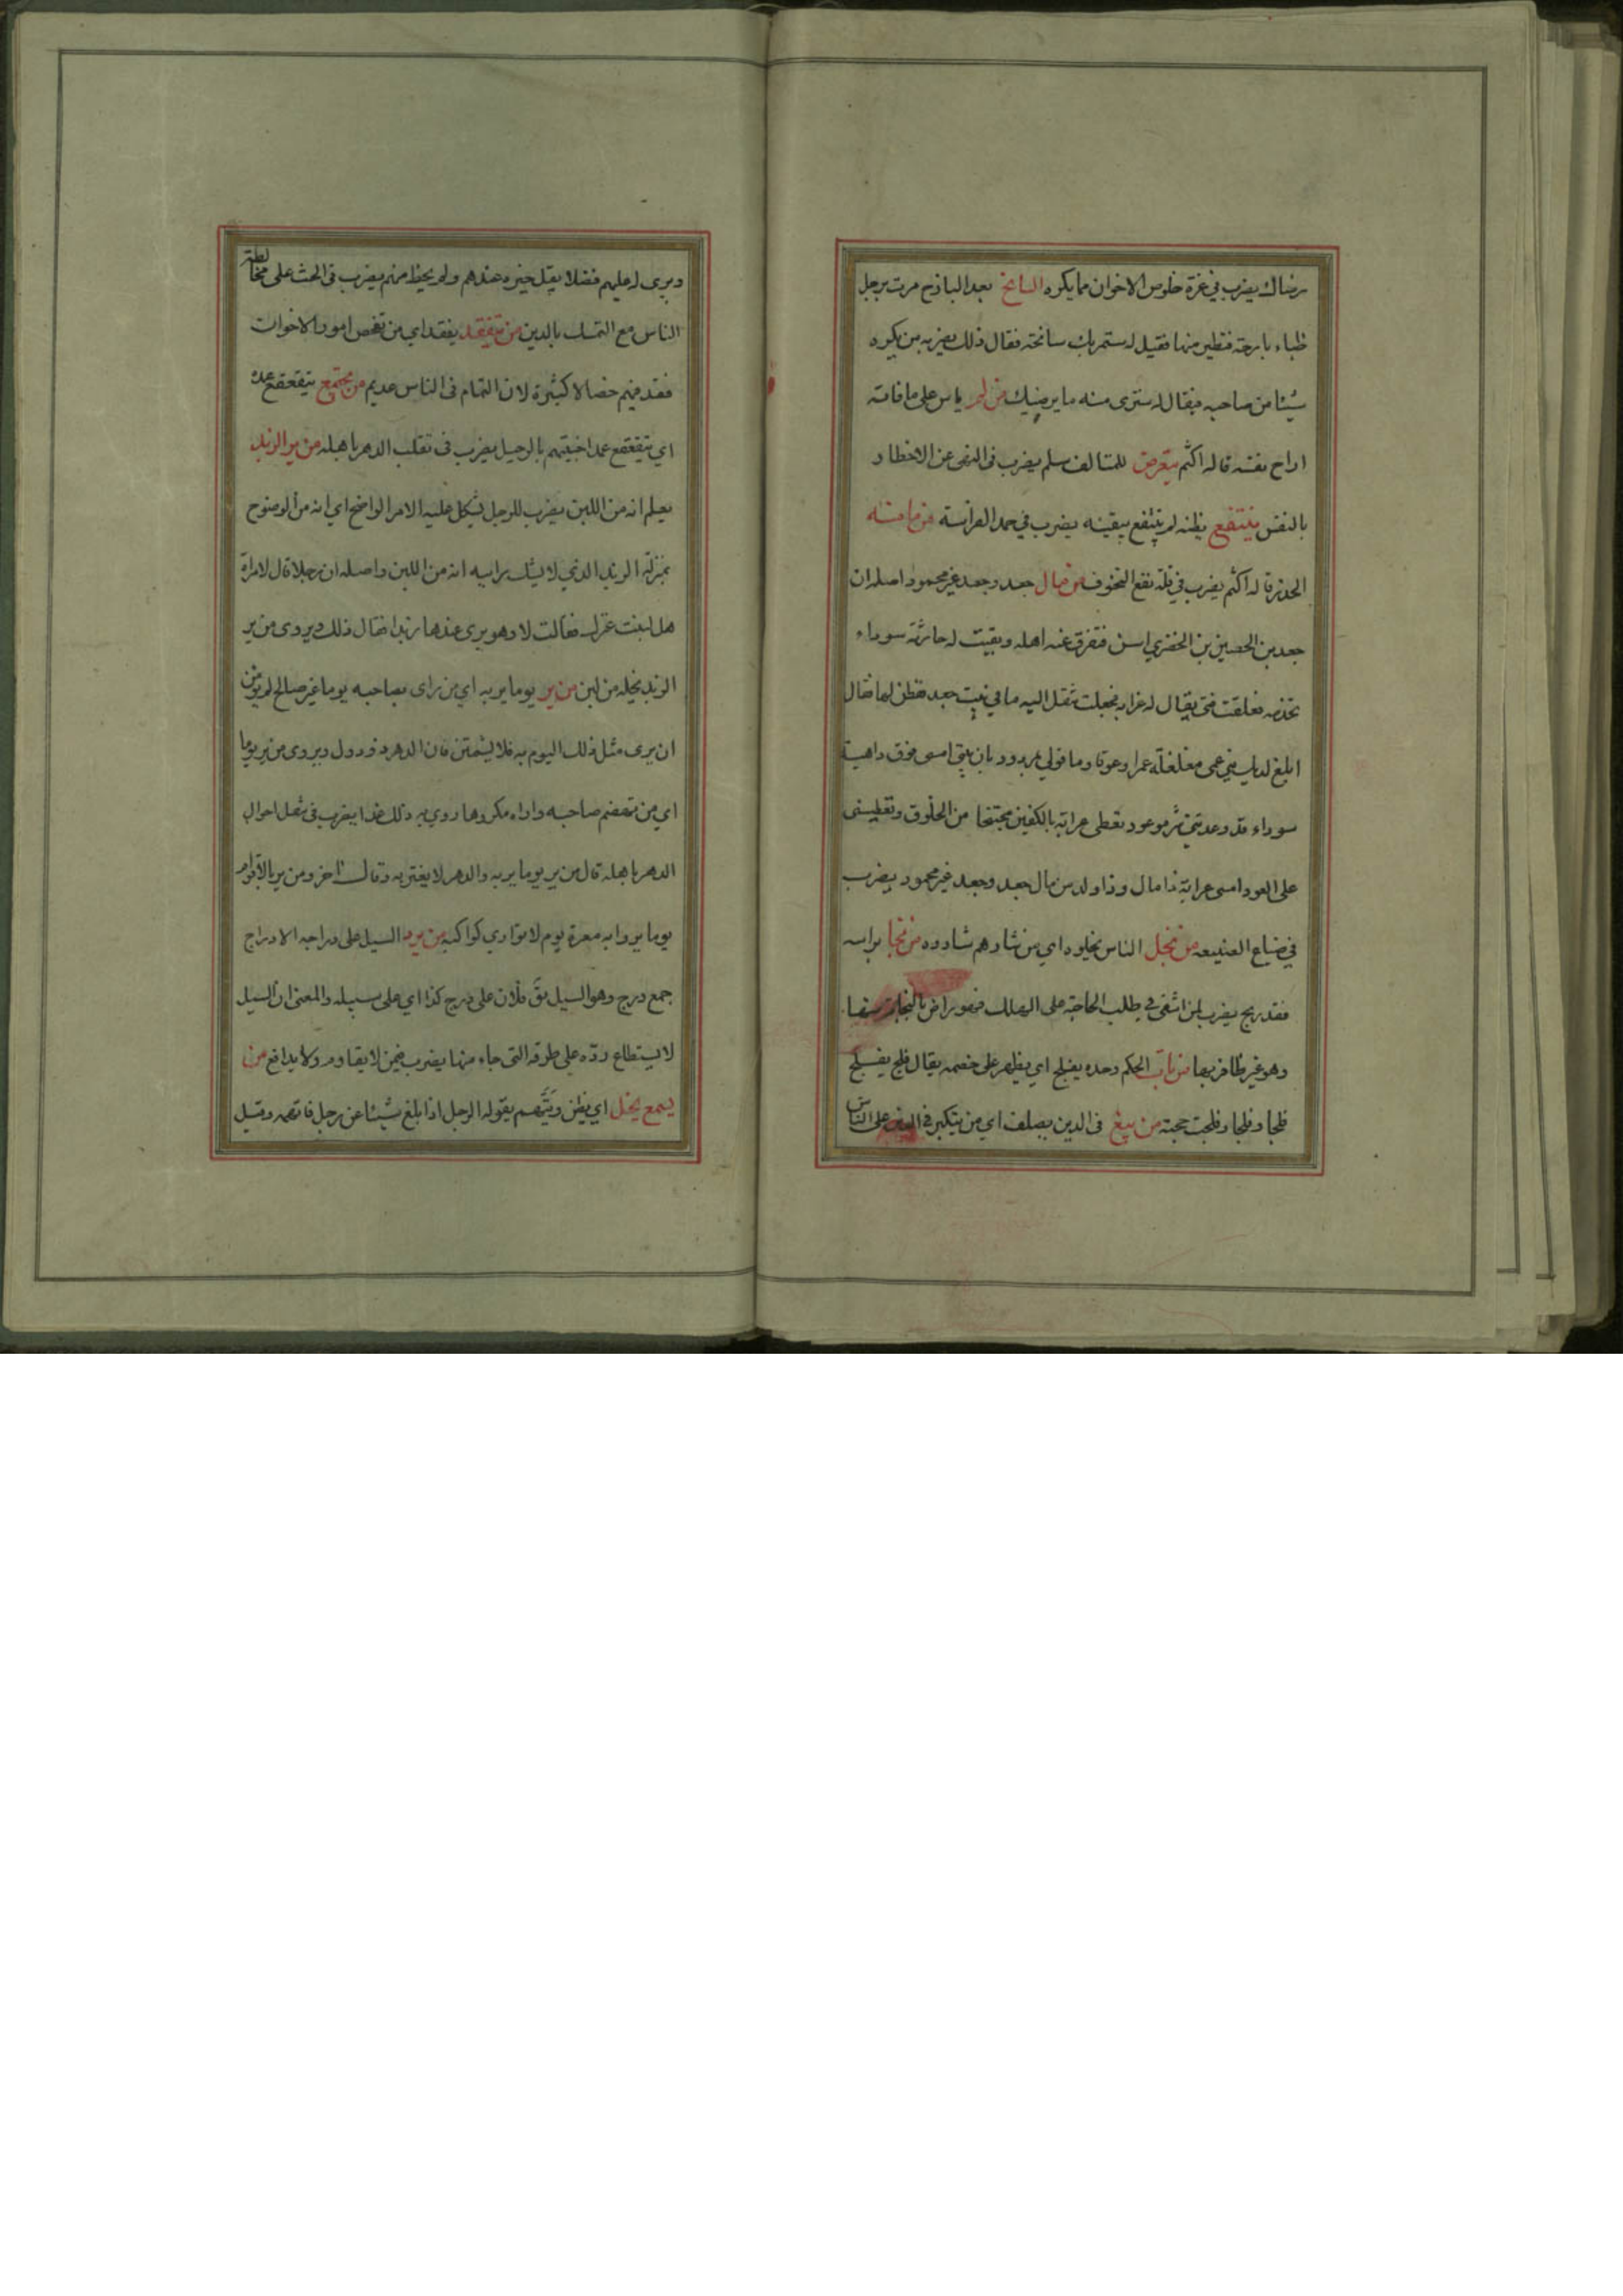 رضاك يضرب في عزة خلوص الاخوان مما يكره السانح بعد البارح مرت برجل
ظباء بارحة فتطير منها فقيل له ستمر بك سانحة فقال ذلك يضربه من يكره
شيئا من صاحبه فيقال له سترى منه ما يرضيك من لم ياس على ما فاته
اراح نفسه قاله اكثم يتعرض للمتالف سلم يضرب في النهى عن الاخطار
بالنفس ينتفع بظنه لم ينتفع بيقينه يضرب في حمد الفراسة من مامنه
الحذر قاله اكثم يضرب في قلة نفع التخوف من مال جعد وجعد غير محمود اصله ان
جعد بن الحصين بن الخضري اسن فتفرق عنه اهله وبقيت له جارية سوداء
تخدمه فعلقت فتى يقال له عرابه فجعلت تنقل اليه ما في بيت جعد ففطن لها فقال
ابلغ لديك بني عمي مغلغلة عمرا وعوفا وما قولي بمردود بان بيتي امسى فوق داهية
سوداء قد وعدتني شر موعود تعطى عرابة بالكفين مجتنحا من الخلوق وتعطيني
على العود امسى عرابة ذا مال وذا ولد من مال جعد وجعد غير محمود يضرب
في ضياع الصنيعه من نجل الناس نجلوه اي من شارهم شاروه من نجا براسه
فقد ربح يضرب لمن اشفى في طلب الحاجة على الهلاك فهو راض بالنجاة
وهو غير ظافر بها من يات الحكم وحده يفلج اي يظهر على خصمه يقال فلج يفلج
فلجا وفلجا وفلجت حجته من يبغ فى الدين يصلف اي من يتكبر في الدين على الناس
ويرى له عليهم فضلا يقل خيره عندهم ولم يحظ منهم يضرب فى الحث على مخالطة
الناس مع التمسك بالدين من يتفقد يفقد اي من تفحص امور الاخوان
فقد فيهم خصالا كثيرة لان التمام فى الناس عديم من يجتمع يتقعقع عمده
اي يتقعقع عمد اخبيتهم بالرحيل يضرب فى تقلب الدهر باهله من ير الزبد
يعلم انه من اللبن يضرب للرجل يشكل عليه الامر الواضح اي انه من الوضوح
بمنزلة الزبد الذي لا يشك رائيه انه من اللبن واصله ان رجلا قال لامراة
هل لبنت غنمك فقالت لا وهو يرى عندها زبدا فقال ذلك ويروى من ير
الزبد يخله من لبن من ير يوما ير به اي من راى بصاحبه يوما غير صالح لم يومن
ان يرى مثل ذلك اليوم به فلا يشمتن فان الدهر ذو دول ويروى من ير يوما
اي من تهضم صاحبه واراه مكروها روي ير ذلك غدا يضرب فى تنقل احوال
الدهر باهله قال من ير يوما ير به والدهر لا يغتر به وقال اخر ومن ير بالاقوام
يوما يروا به معرة يوم لا توارى كواكبه من يرد السيل على دراجه الادراج
جمع درج وهو السبيل مر فلان على درج كذا اي على سبيله والمعنى ان السيل
لا يستطاع رده على طرقه التى جاء منها يضرب فيمن لا يقاوم ولا يدافع من
يسمع يخل اي يظن ويتهم يقوله الرجل اذا بلغ شيئا عن رجل فاتهمه وقيل